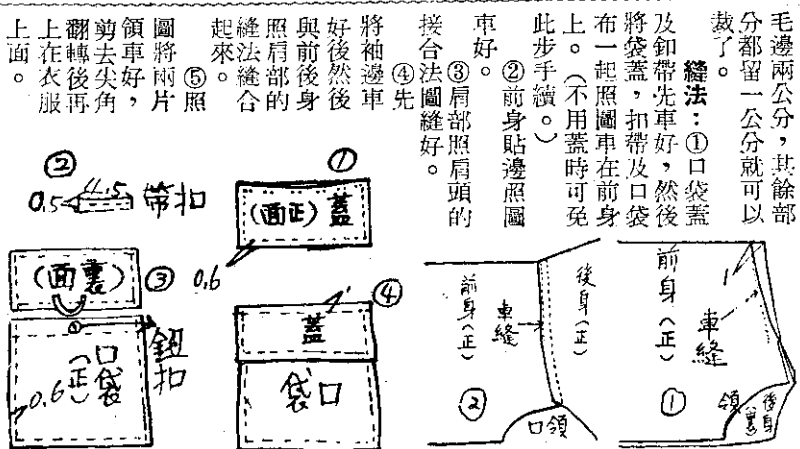 毛邊兩公分，其餘部
分都留一公分就可以
裁了。
縫法：①口袋蓋
及釦帶先車好，然後
將袋蓋，扣帶及口袋
布一起照圖車在前身
上。（不用蓋時可免
此步手續。）
②前身貼邊照圖
車好。
③肩部照肩頭的
接合法圖縫好。
④先
將袖邊車
好後然後
與前後身
照肩部的
縫法縫合
起來。
⑤照
圖將兩片
領車好，
剪去尖角
翻轉後再
上在衣服
上面。
①
蓋（正面）
0.6
②
0.5
4.5
帶扣
③
（裏面）
鈕扣
口袋（正）
0.6
④
蓋
口袋
1
前身（正）
車縫
領
後身（裏）
①
前身（正）
車縫
後身（正）
領口
②